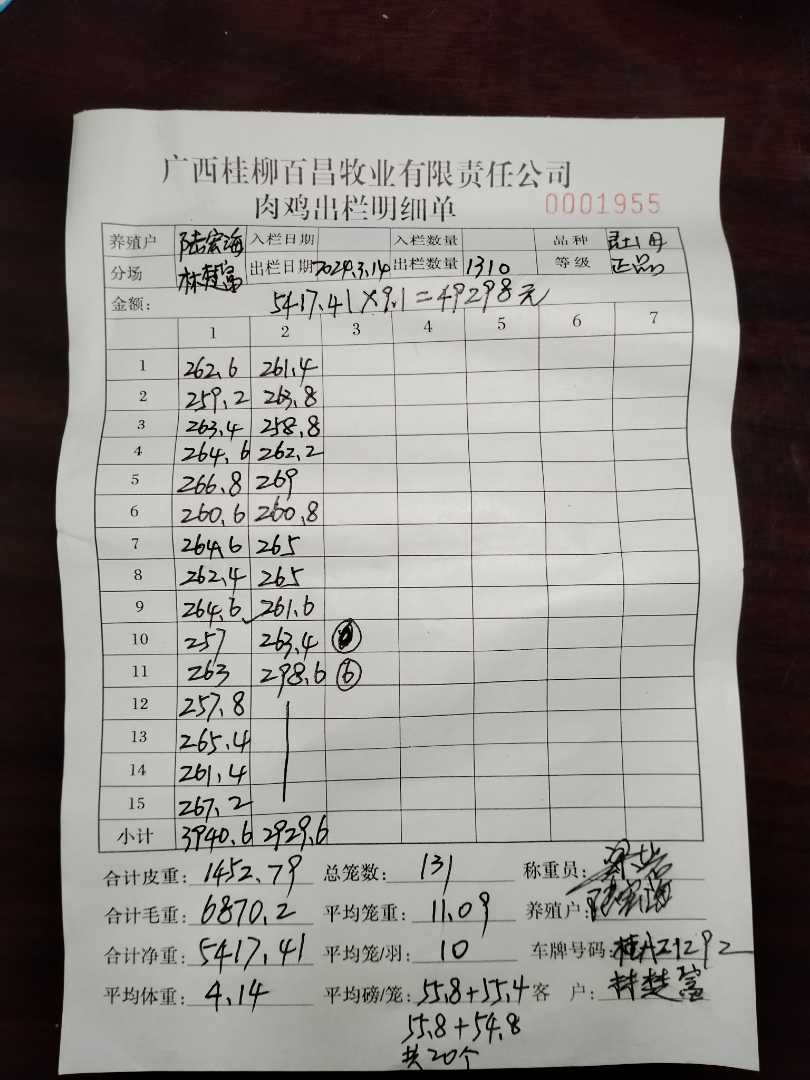 广西桂柳百昌牧业有限责任公司
肉鸡出栏明细单 0001955
养殖户 陆宏海 入栏日期 入栏数量 品种 土1母
分场 林楚富 出栏日期 2024.3.14 出栏数量 1310 等级 正品
金额: 5417.41×9.1=49298元
1 2 3 4 5 6 7
1 262.6 261.4
2 259.2 263.8
3 263.4 258.8
4 264.6 262.2
5 266.8 269
6 260.6 260.8
7 264.6 265
8 262.4 265
9 264.6 261.6
10 257 263.4
11 263 298.6 ⑥
12 257.8
13 265.4
14 261.4
15 267.2
小计 3940.6 2929.6
合计皮重: 1452.79 总笼数: 131 称重员:
合计毛重: 6870.2 平均笼重: 11.09 养殖户: 陆宏海
合计净重: 5417.41 平均笼/羽: 10 车牌号码: 桂A21292
平均体重: 4.14 平均磅/笼: 55.8+55.4 客 户: 林楚富
55.8+54.8
共20个